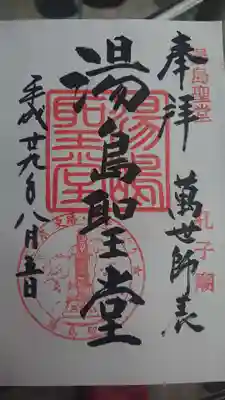 奉拝
湯島聖堂
萬世師表
孔子廟
湯島聖堂
湯島聖堂
平成廿九年八月五日